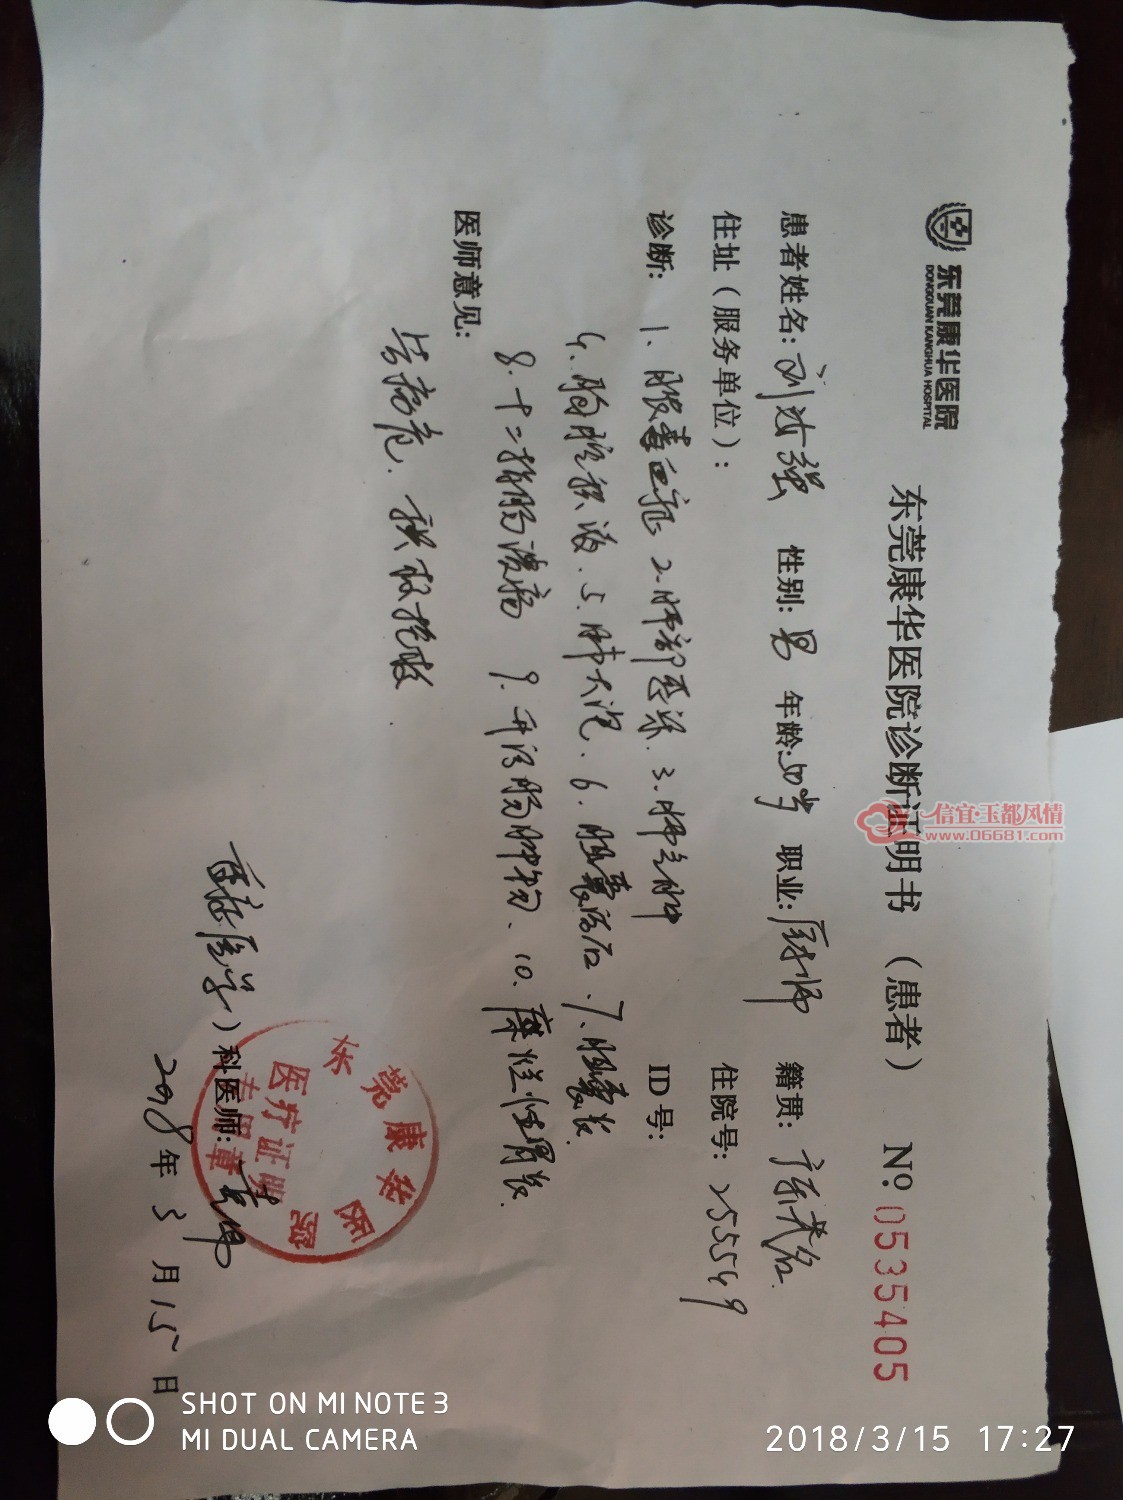 东莞康华医院
DONGGUAN KANGHUA HOSPITAL
东莞康华医院诊断证明书（患者） Nº 0535405
患者姓名: 刘 强 性别: 男 年龄: 岁 职业: 厨师 籍贯: 广东茂名
住址（服务单位）: 住院号: 255549
诊断: ID号:
1、脓毒血症 2.肺部感染. 3.肺气肿
4.胸腔积液. 5.肺大泡. 6.胆囊结石. 7.胆囊炎.
8.十二指肠溃疡 9.升结肠肿物. 10.糜烂性胃炎.
医师意见:
告病危. 积极抢救.
重症医学）科医师:
2018年3月15日
东莞康华医院
医疗证明
专用章
信宜·玉都风情
www.06681.com
SHOT ON MI NOTE 3
MI DUAL CAMERA
2018/3/15 17:27